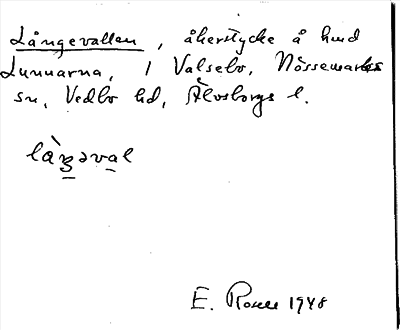 Långevallen, åkerstycke å hmd
Lunnarna, 1 Valsebo, Nössemarks
sn, Vedbo hd, Älvsborgs l.
làŋəval
E. Rosell 1948